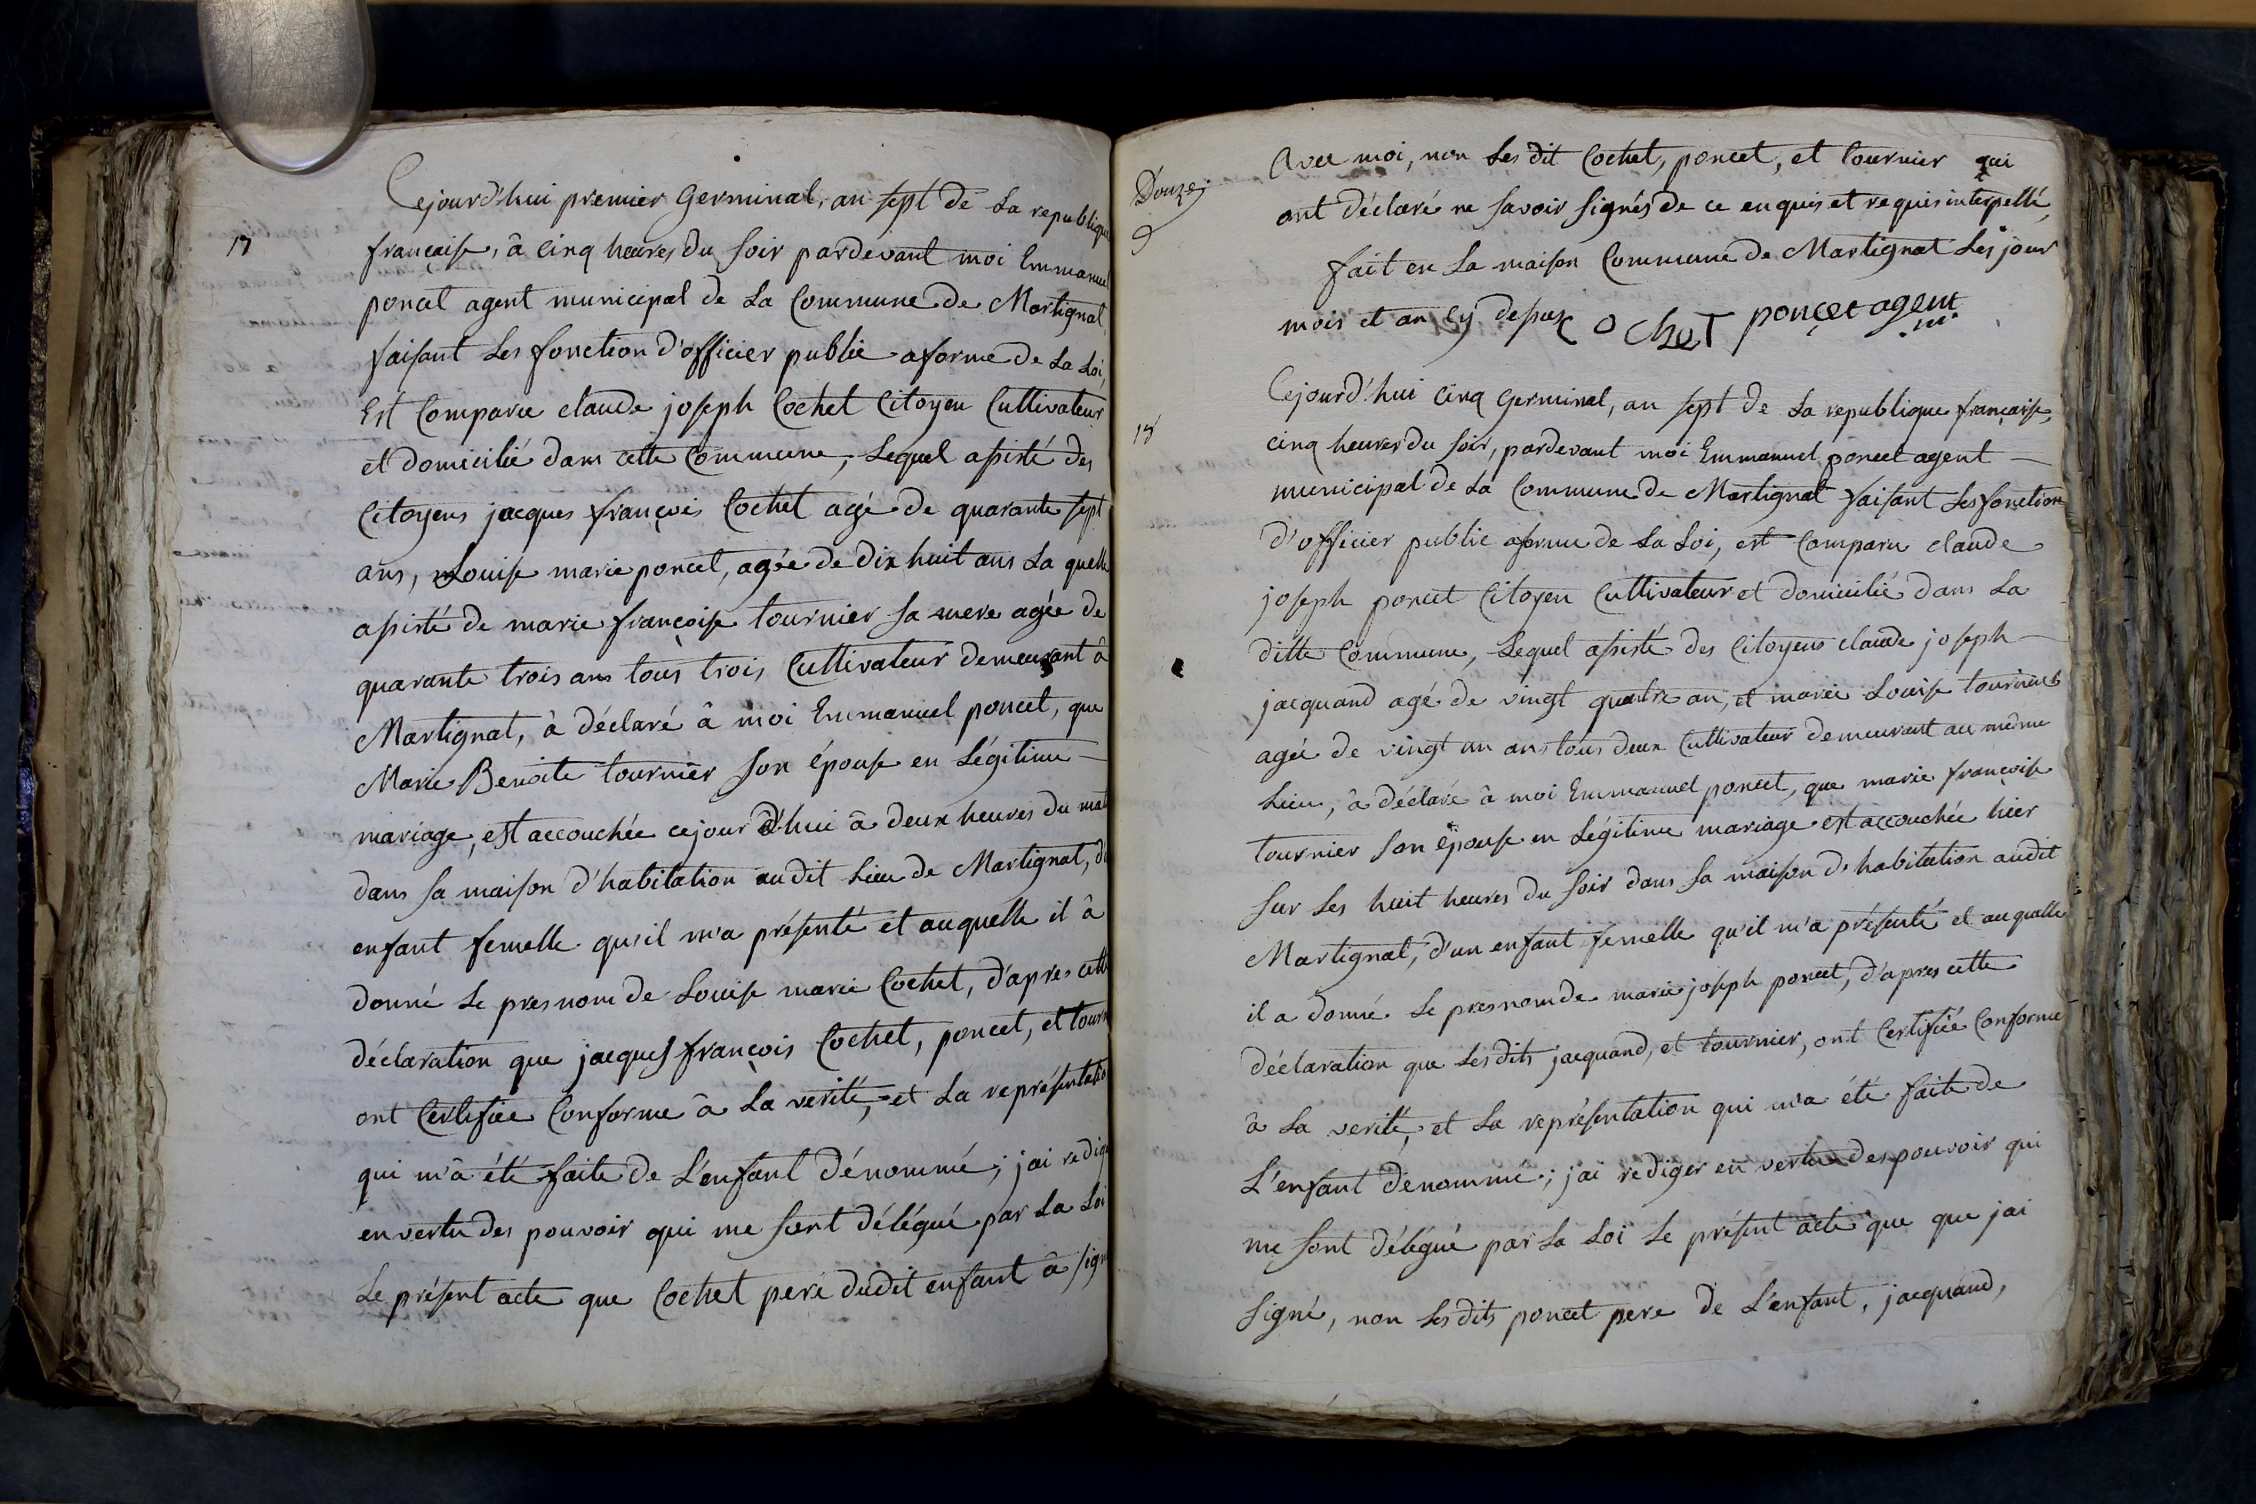 17
Cejourd'hui premier Germinal, an sept de La republique
française, â Cinq heures du soir pardevant moi Emmanuel
poncet agent municipal de La Commune de Martignat,
faisant Les fonction d'officier public aforme de La Loi,
Est Comparu claude joseph Cochet Citoyen Cultivateur
et domicilié dans cette Commune, Lequel assisté des
Citoyens jacques françois Cochet agé de quarante sept
ans, Louise marie poncet, agée de dix huit ans La quelle
assisté de marie françoise tournier sa mere agée de
quarante trois ans tous trois Cultivateur demeurant â
Martignat, à déclaré â moi Emmanuel poncet, que
Marie Benoite tournier son épouse en Légitime
mariage, est accouchée cejour d'hui â deux heures du mat
dans sa maison d'habitation audit Lieu de Martignat, d'
enfant femelle qu'il m'a présenté et auquelle il â
donné Le presnom de Louise marie Cochet, d'apres cette
déclaration que jacques françois Cochet, poncet, et tourn
ont Certifiée Conforme â La verité, et La représentatio
qui m'â été faite de L'enfant dénommé; jai redig
en vertu des pouvoir qui me sont délégué par La Loi
Le présent acte que Cochet pere dudit enfant â sign
Douze
Avec moi, non Les dit Cochet, poncet, et tournier qui
ont déclaré ne savoir signés de ce enquis et requis interpellé,
fait en La maison Commune de Martignat Les jour
mois et an cy depus COCheT ponçet agent
18
Cejourd'hui Cinq Germinal, an sept de La republique française,
cinq heures du soir, pardevant moi Emmanuel poncet agent
municipal de La Commune de Martignat faisant Les fonction
d'officier public aforme de La Loi, est Comparu claude
joseph poncet Citoyen Cultivateur et domicilié dans La
ditte Commune, Lequel assisté des Citoyens claude joseph
jacquand agé de vingt quatre an, et marie Louise tournier
agée de vingt un ans tous deux Cultivateur demeurant au même
Lieu, â déclaré â moi Emmanuel poncet, que marie françoise
tournier son épouse en Légitime mariage est accouchée hier
sur Les huit heures du soir dans sa maison d'habitation audit
Martignat, d'un enfant femelle qu'il m'a présenté et auquelle
il a donné Le presnom de marie joseph poncet, d'apres cette
déclaration que Lesdits jacquand, et tournier, ont Certifiée Conforme
â La verité, et La représentation qui m'a été faite de
L'enfant dénommé; jai rediger en vertu des pouvoir qui
me sont délégué par La Loi Le présent acte que que jai
signé, non Lesdits poncet pere de L'enfant, jacquand,